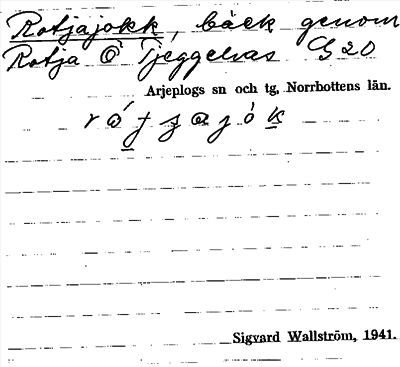 Rotjajokk, bäck genom
Rotja Ö Tjeggelvas G 20
Arjeplogs sn och tg, Norrbottens län.
Sigvard Wallström, 1941.